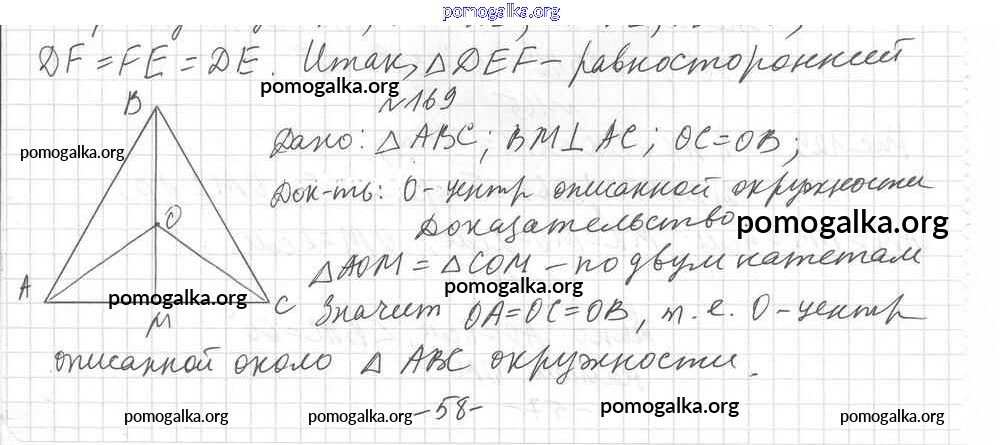 pomogalka.org
DF = FE = DE. Итак, △DEF – равносторонний
pomogalka.org
№169
B
Дано: △ABC; BM⊥AC; OC=OB;
pomogalka.org
Док-ть: O-центр описанной окружности
O
Доказательство
pomogalka.org
△AOM = △COM – по двум катетам
A
pomogalka.org
pomogalka.org
M
C
Значит OA=OC=OB, т.е. O-центр
описанной около △ ABC окружности.
-58-
pomogalka.org
pomogalka.org
pomogalka.org
pomogalka.org